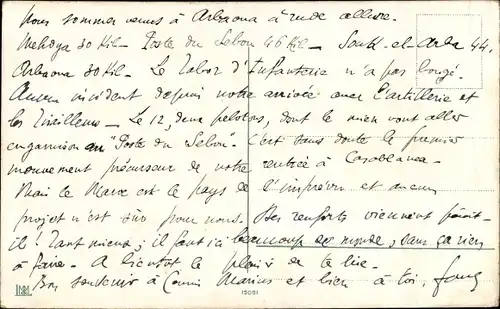 Nous sommes venus à Arbaoua à rude allure.
Mehdya 30 Kil – Poste du Sebou 46 Kil – Souk-el-Arba 44.
Arbaoua 30 Kil – Le Tabor d'Infanterie n'a pas bougé.
Aucun incident depuis notre arrivée avec l'artillerie et
les Tirailleurs – Le 12, deux pelotons, dont le mien vont aller
en garnison au "Poste du Sebou" – C'est sans doute le premier
mouvement précurseur de notre rentrée à Casablanca –
Mais le Maroc est le pays de l'imprévu et aucun
projet n'est sûr pour nous. Des renforts viennent paraît-
il! Tant mieux; il faut ici beaucoup de monde, sans ça rien
à faire. A bientôt le plaisir de te lire –
Bon souvenir à Marius et bien à toi,
12021